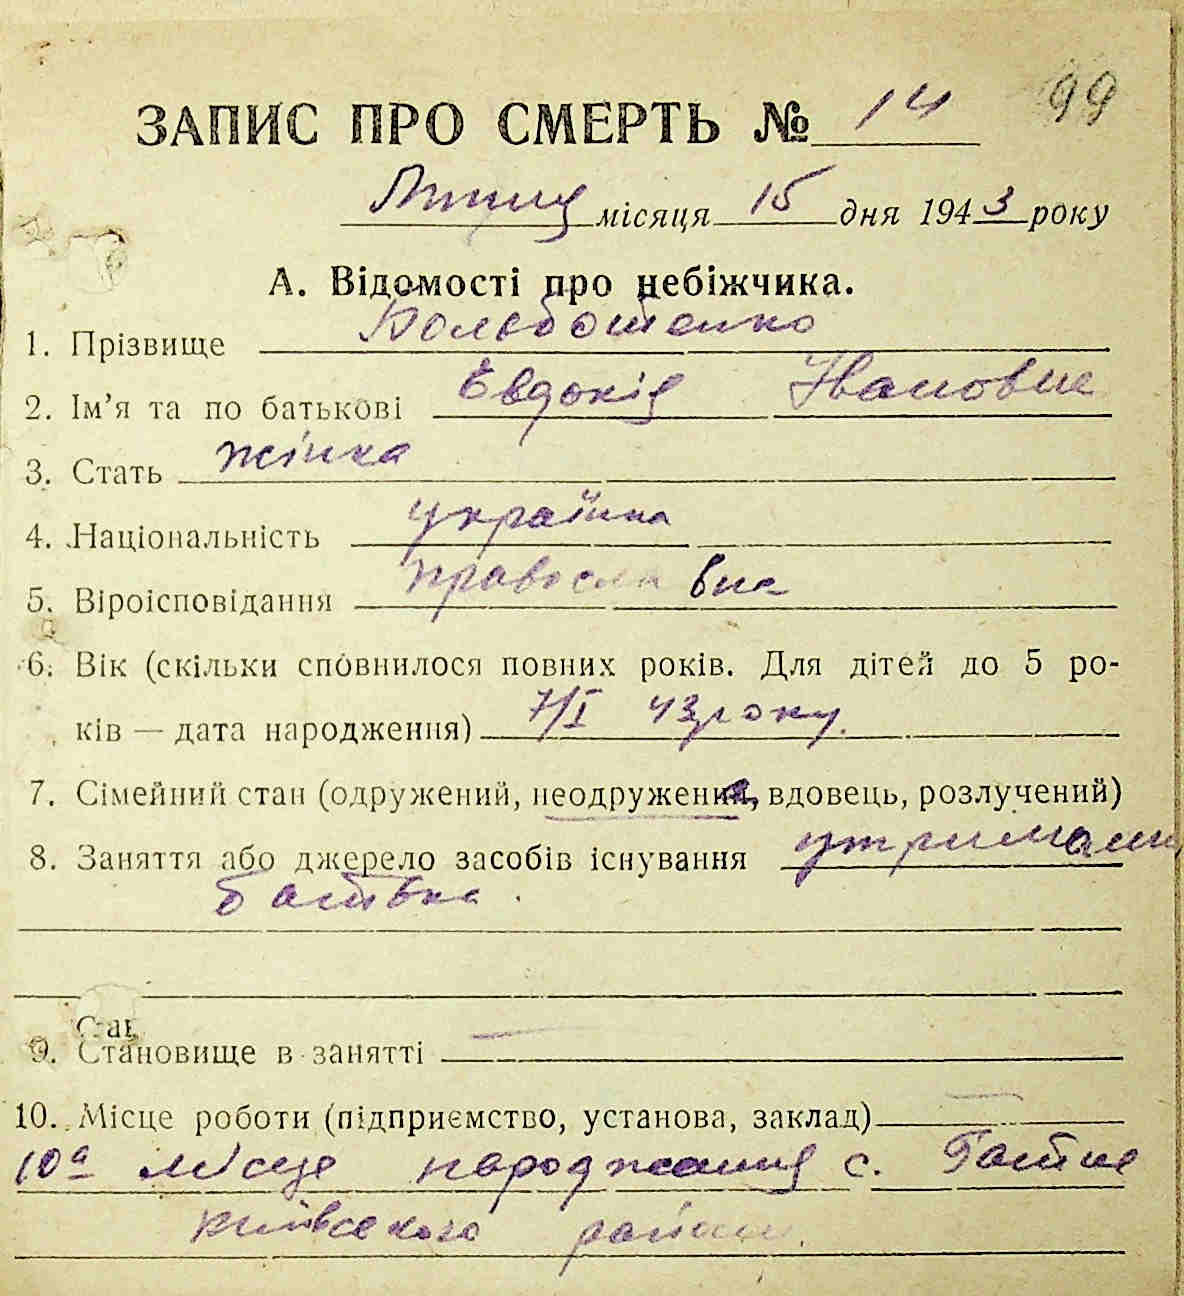 ЗАПИС ПРО СМЕРТЬ № 14 99
Липня місяця 15 дня 1943 року
А. Відомості про небіжчика.
1. Прізвище
2. Ім'я та по батькові Євдокія Ивановна
3. Стать жінка
4. Національність українка
5. Віроісповідання православна
6. Вік (скільки сповнилося повних років. Для дітей до 5 ро-
ків — дата народження) 7/I 43 року.
7. Сімейний стан (одружений, неодружена, вдовець, розлучений)
8. Заняття або джерело засобів існування утриман
батька.
Стан
9. Становище в занятті —
10. Місце роботи (підприємство, установа, заклад) —
10а місце народження с. Гатне
Київського району.